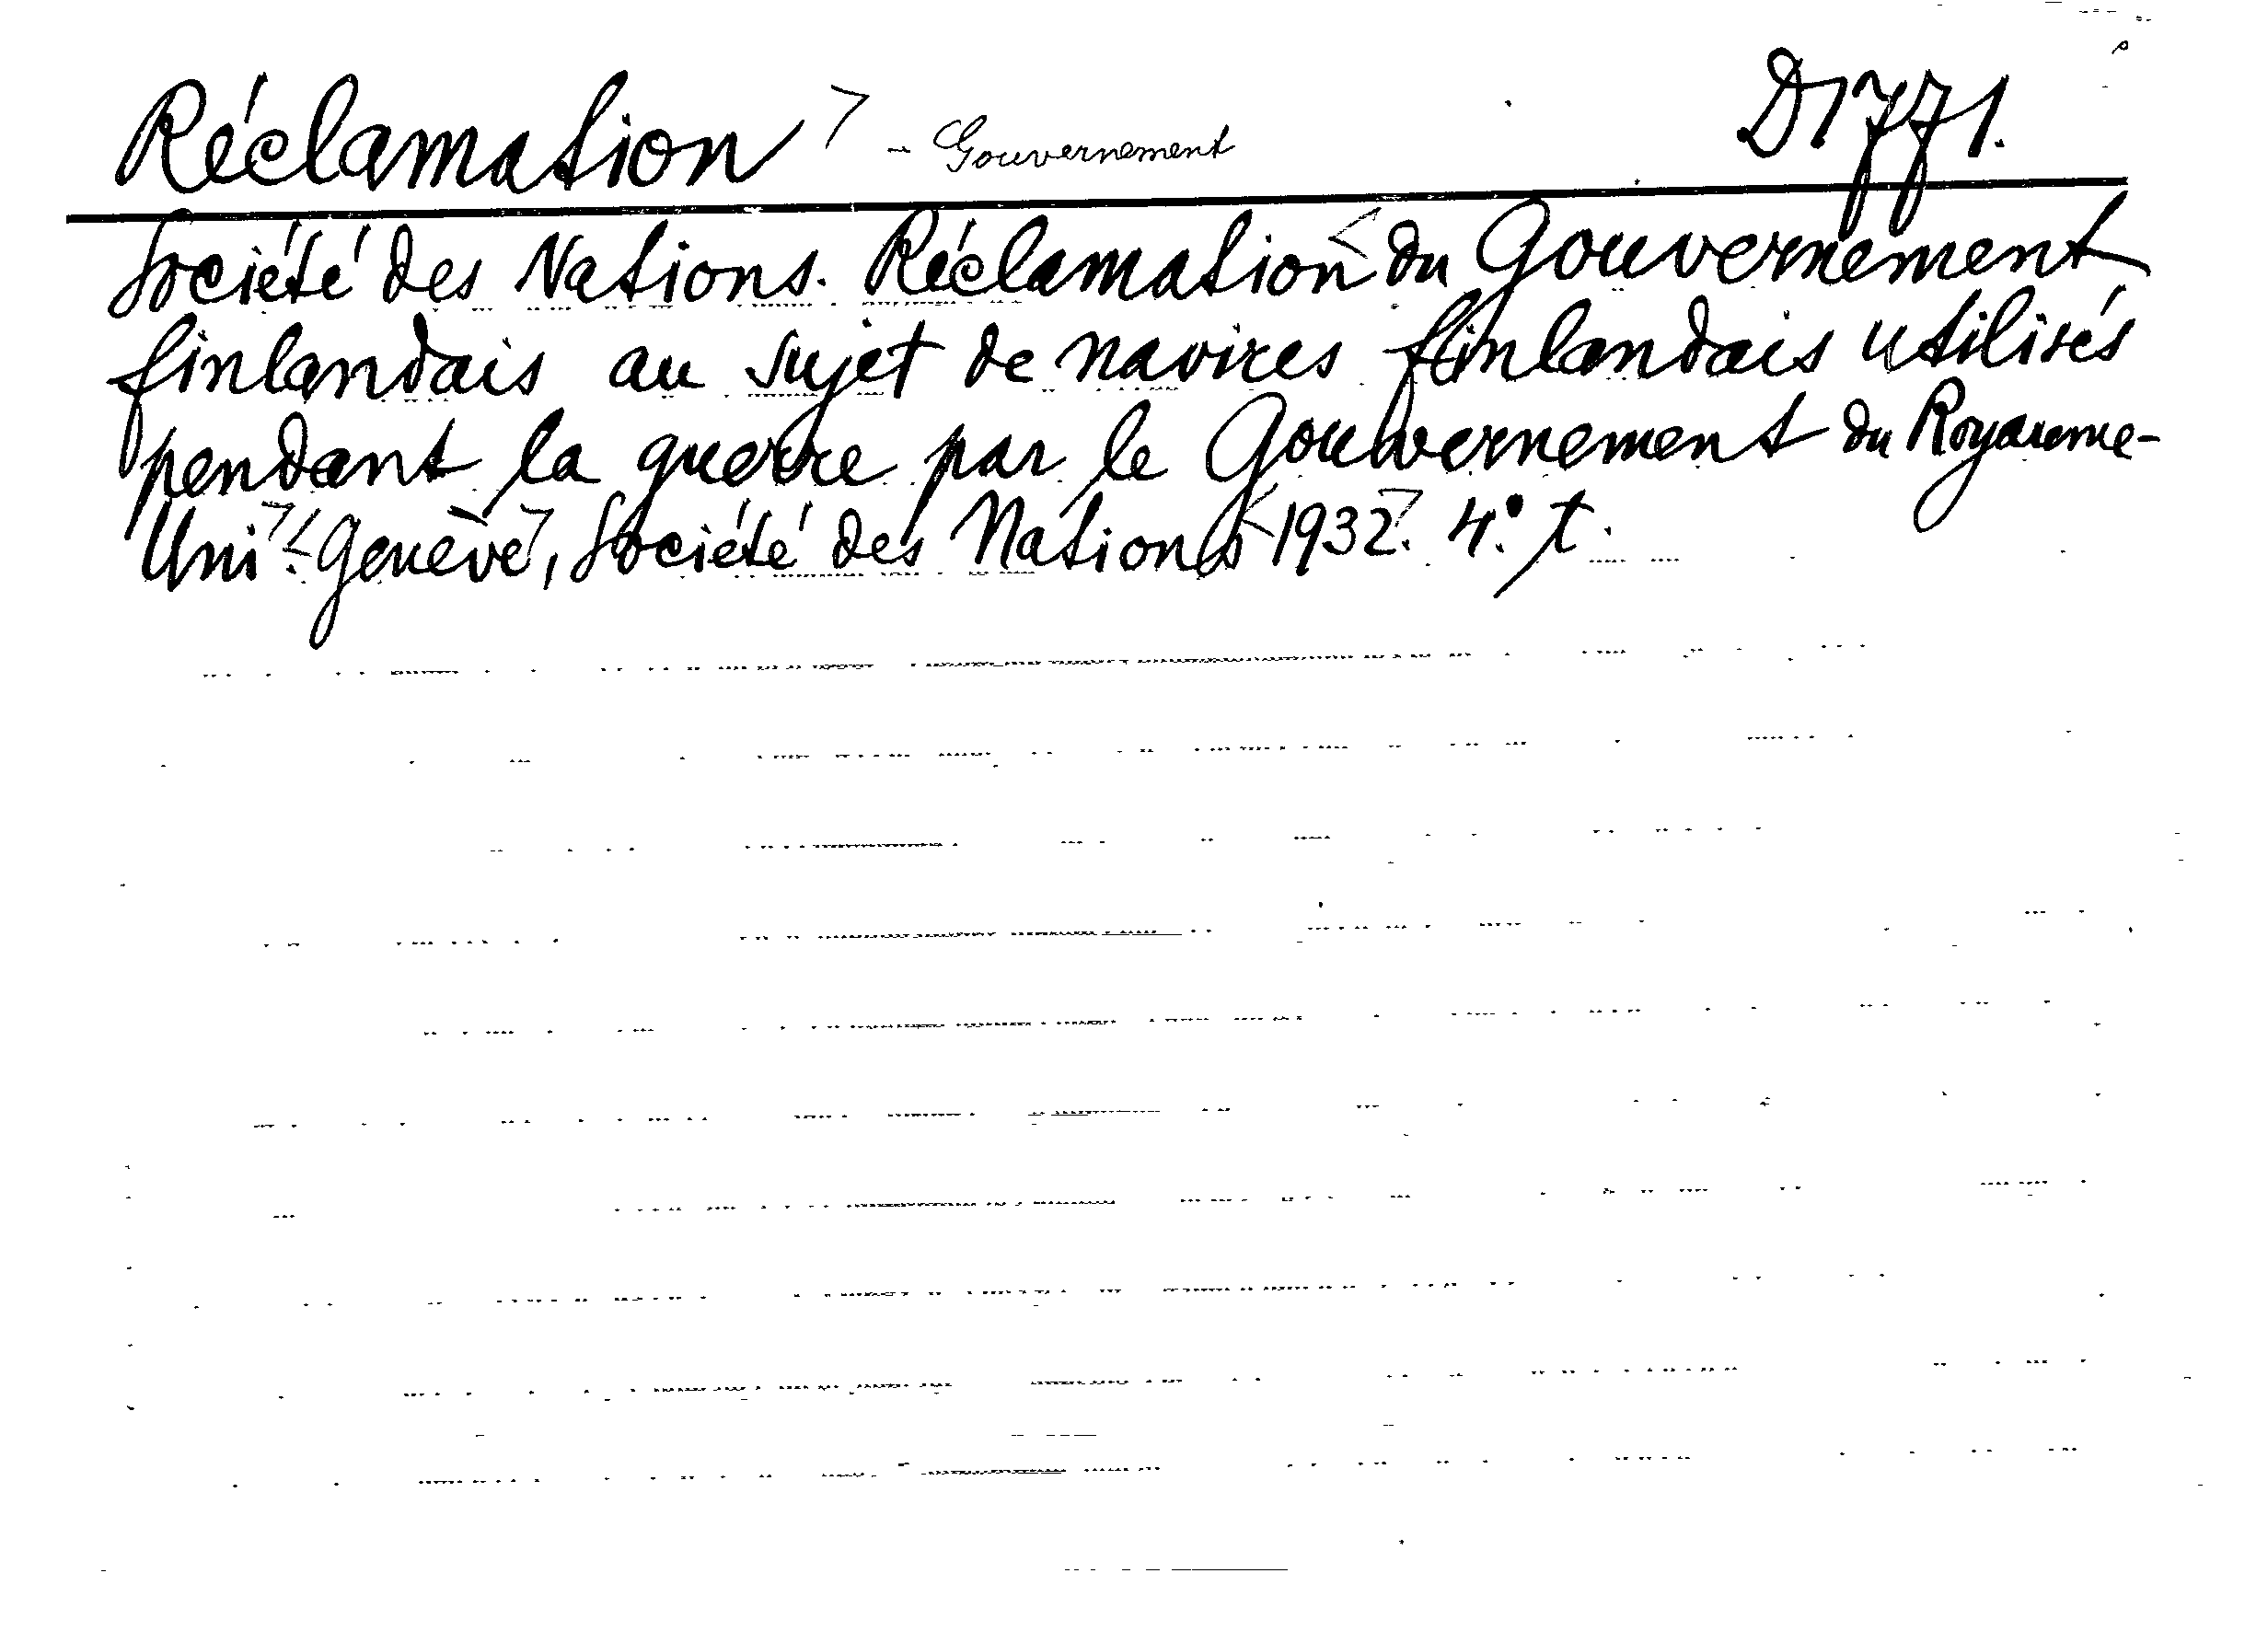 Réclamation - Gouvernement D1771.
Société des Nations. Réclamation du Gouvernement
finlandais au sujet de navires finlandais utilisés
pendant la guerre par le Gouvernement du Royaume-
Uni. Genève, Société des Nations 1932. 4:° t.